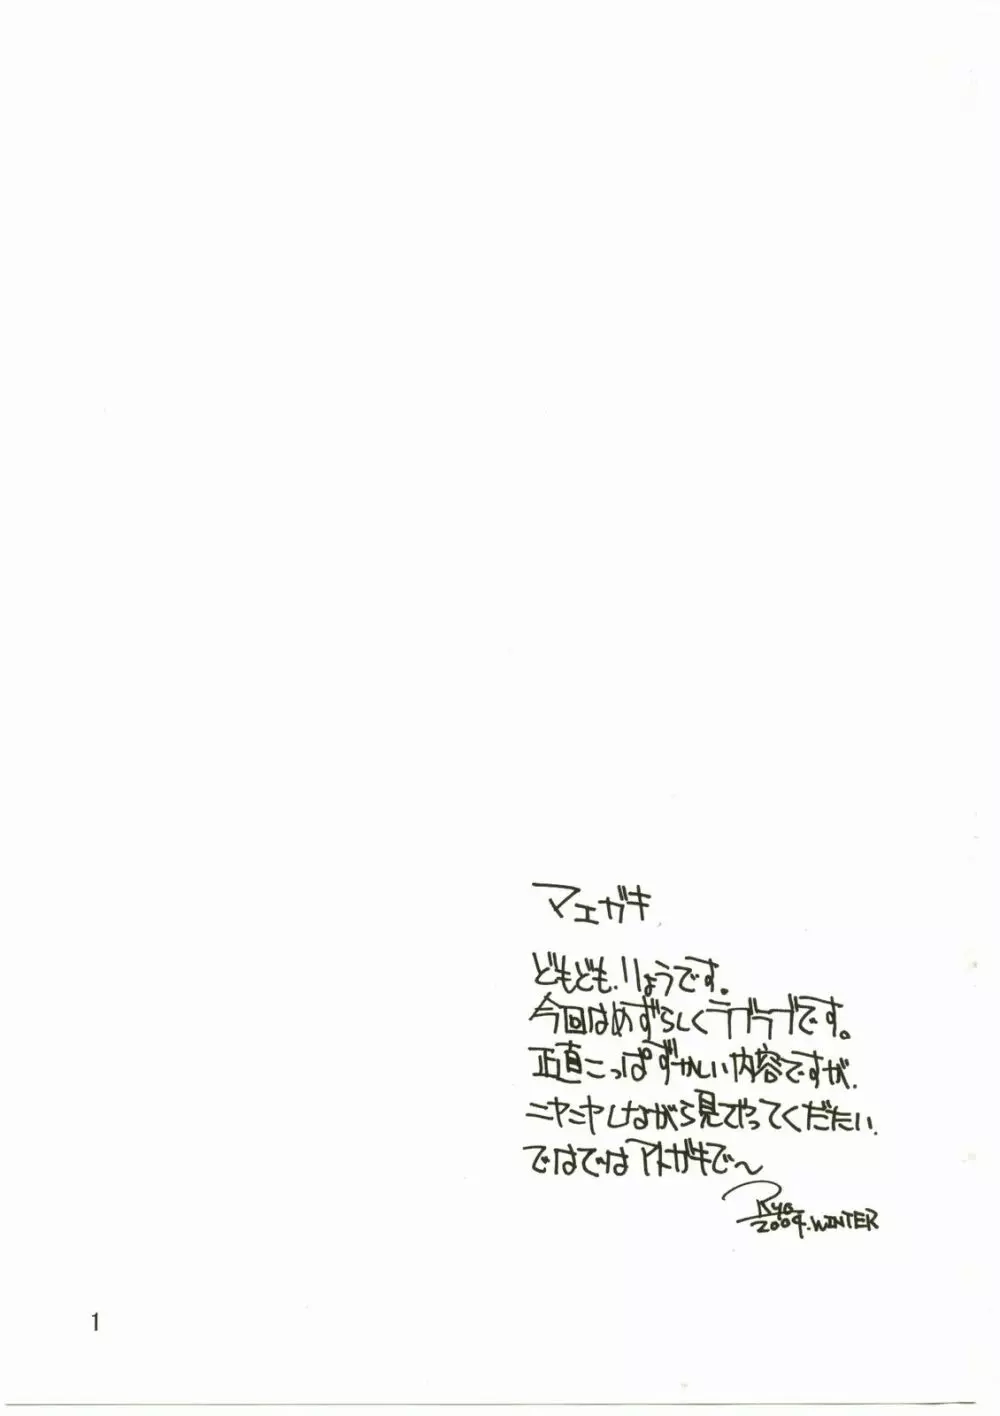 マエガキ
どもども、りょうです。
今回はめずらしくラブラブです。
正直こっぱずかしい内容ですが、
ニヤニヤしながら見てやってくだたい。
ではではアトガキで〜
Ryo
2009.WINTER
1